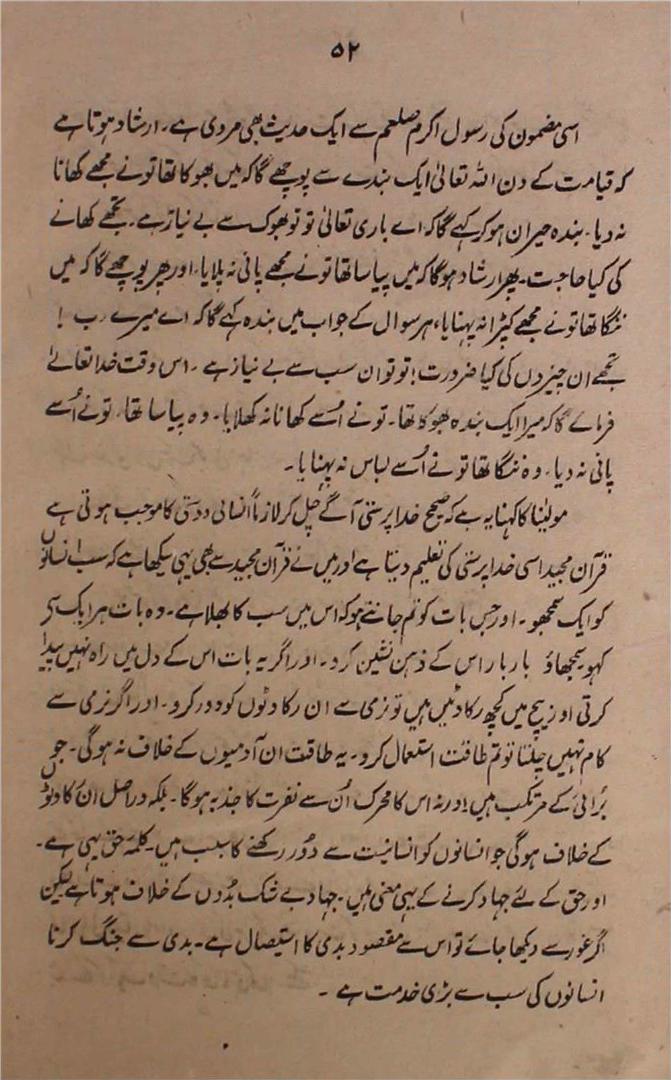 ۵۲
اسی مضمون کی رسول اکرم صلعم سے ایک حدیث بھی مروی ہے۔ ارشاد ہوتا ہے
کہ قیامت کے دن اللہ تعالیٰ ایک بندے سے پوچھے گا کہ میں بھوکا تھا تو نے مجھے کھانا
نہ دیا۔ بندہ حیران ہو کر کہے گا کہ اے باری تعالیٰ تو تو بھوک سے بے نیاز ہے۔ تجھے کھانے
کی کیا حاجت۔ پھر ارشاد ہوگا کہ میں پیاسا تھا تو نے مجھے پانی نہ پلایا۔ اور پھر پوچھے گا کہ میں
ننگا تھا تو نے مجھے کپڑا نہ پہنایا، ہر سوال کے جواب میں بندہ کہے گا کہ اے میرے رب !
تجھے ان چیزوں کی کیا ضرورت ! تو تو ان سب سے بے نیاز ہے۔ اس وقت خدا تعالےٰ
فرمائے گا کہ میرا ایک بندہ بھوکا تھا۔ تو نے اُسے کھانا نہ کھلایا۔ وہ پیاسا تھا، تو نے اُسے
پانی نہ دیا۔ وہ ننگا تھا تو نے اُسے لباس نہ پہنایا۔
مولینٰا کا کہنا یہ ہے کہ صحیح خدا پرستی آگے چل کر لازماً انسانی دوستی کا موجب ہوتی ہے
قرآن مجید اسی خدا پرستی کی تعلیم دیتا ہے اور میں نے قرآن مجید سے بھی یہی سیکھا ہے کہ سب انسانوں
کو ایک سمجھو۔ اور جس بات کو تم جانتے ہو کہ اس میں سب کا بھلا ہے۔ وہ بات ہر ایک سے
کہو سمجھاؤ بار بار اس کے ذہن نشین کرو۔ اور اگر یہ بات اس کے دل میں راہ نہیں پیدا
کرتی اور بیچ میں کچھ رکاوٹیں ہیں تو نرمی سے ان رکاوٹوں کو دور کرو۔ اور اگر نرمی سے
کام نہیں چلتا تو تم طاقت استعمال کرو۔ یہ طاقت ان آدمیوں کے خلاف نہ ہوگی۔ جو
بُرائی کے مرتکب ہیں اور نہ اس کا محرک اُن سے نفرت کا جذبہ ہوگا۔ بلکہ دراصل ان رکاوٹوں
کے خلاف ہوگی جو انسانوں کو انسانیت سے دُور رکھنے کا سبب ہیں۔ کلمۂ حق یہی ہے۔
اور حق کے لئے جہاد کرنے کے یہی معنی ہیں۔ جہاد بے شک بدوں کے خلاف ہوتا ہے لیکن
اگر غور سے دیکھا جائے تو اس سے مقصود بدی کا استیصال ہے۔ بدی سے جنگ کرنا
انسانوں کی سب سے بڑی خدمت ہے۔